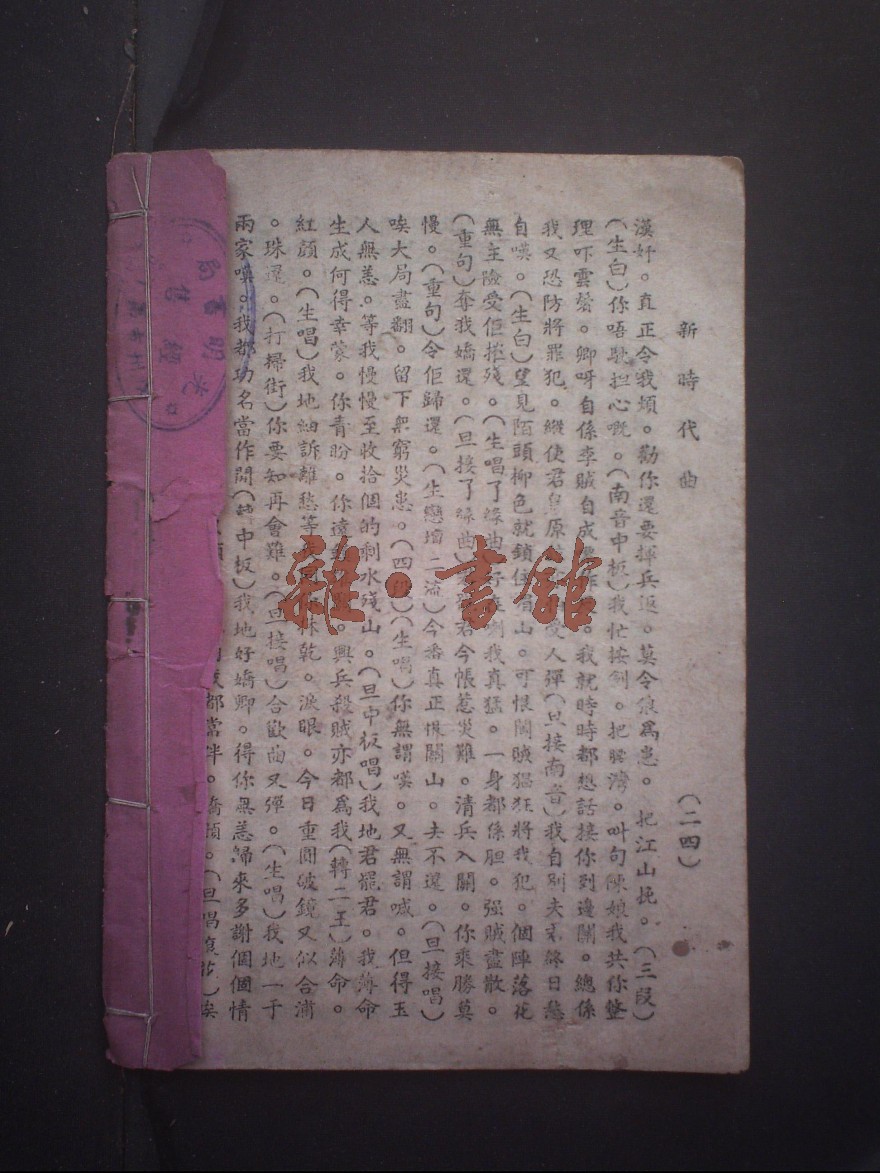 新時代曲 （二四）
漢奸。真正令我煩。勸你還要揮兵返。莫令狼為患。把江山挽。（三段）
（生白）你唔駛担心嘅。（南音中板）我忙按劍。把腰灣。叫句陳娘我共你整
理吓雲鬢。卿呀自係李賊自成。我就時時都想話接你到邊關。總係
我又恐防將罪犯。縱使君皇原。受人彈（旦接南音）我自別夫君終日愁
自嘆。（生白）望見陌頭柳色就鎖住眉山。可恨闖賊猖狂將我犯。個陣落花
無主險受佢摧殘。（生唱了緣曲）我真猛。一身都係胆。强賊盡散。
（重句）奪我嬌還。（旦接了緣曲）君今悵惹災難。清兵入關。你乘勝莫
慢。（重句）令佢歸還。（生戀壇二流）今番真正係關山。夫不還。（旦接唱）
唉大局盡翻。留下無窮災患。（四段）（生唱）你無謂嘆。又無謂喊。但得玉
人無恙。等我慢慢至收拾個的剩水殘山。（旦中板唱）我地君罷君。我薄命
生成何得幸蒙。你青盼。你遠。興兵殺賊亦都為我（轉二王）薄命。
紅顏。（生唱）我地細訴離愁等我同你抹乾。淚眼。今日重圓破鏡又似合浦
。珠還。（打掃街）你要知再會難。（旦接唱）合歡曲又彈。（生唱）我地一于
兩家喚。我都功名當作閒（中板）我地好嬌卿。得你無恙歸來多謝個個情
都當伴。嬌顏。（旦唱）唉
雜·書館
光明書局
經售